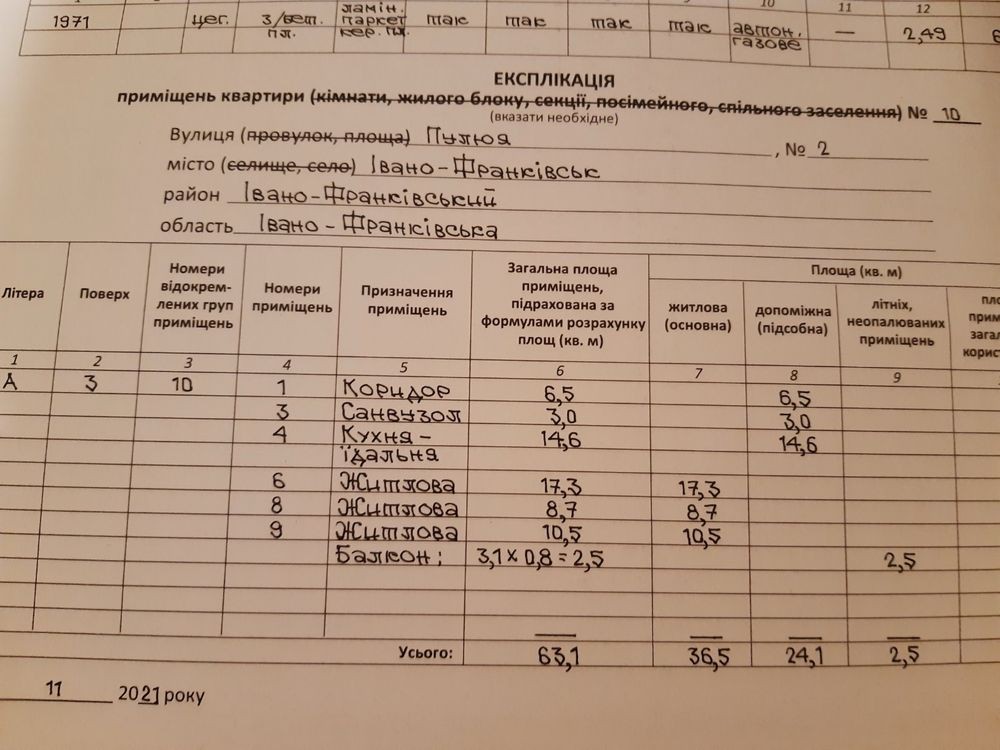 10 11 12
1971 цег. з/бет. пл. ламін. паркет кер. пл. так так так так автон. газове — 2,49
ЕКСПЛІКАЦІЯ
приміщень квартири (кімнати, жилого блоку, секції, посімейного, спільного заселення) № 10
(вказати необхідне)
Вулиця (провулок, площа) Пулюя , № 2
місто (селище, село) Івано-Франківськ
район Івано-Франківський
область Івано-Франківська
Літера Поверх Номери відокрем-лених груп приміщень Номери приміщень Призначення приміщень Загальна площа приміщень, підрахована за формулами розрахунку площ (кв. м) Площа (кв. м)
житлова (основна) допоміжна (підсобна) літніх, неопалюваних приміщень
1 2 3 4 5 6 7 8 9
А 3 10 1 Коридор 6,5 6,5
3 Санвузол 3,0 3,0
4 Кухня- 14,6 14,6
їдальня
6 Житлова 17,3 17,3
8 Житлова 8,7 8,7
9 Житлова 10,5 10,5
Балкон: 3,1 x 0,8 = 2,5 2,5
Усього: 63,1 36,5 24,1 2,5
11 2021 року